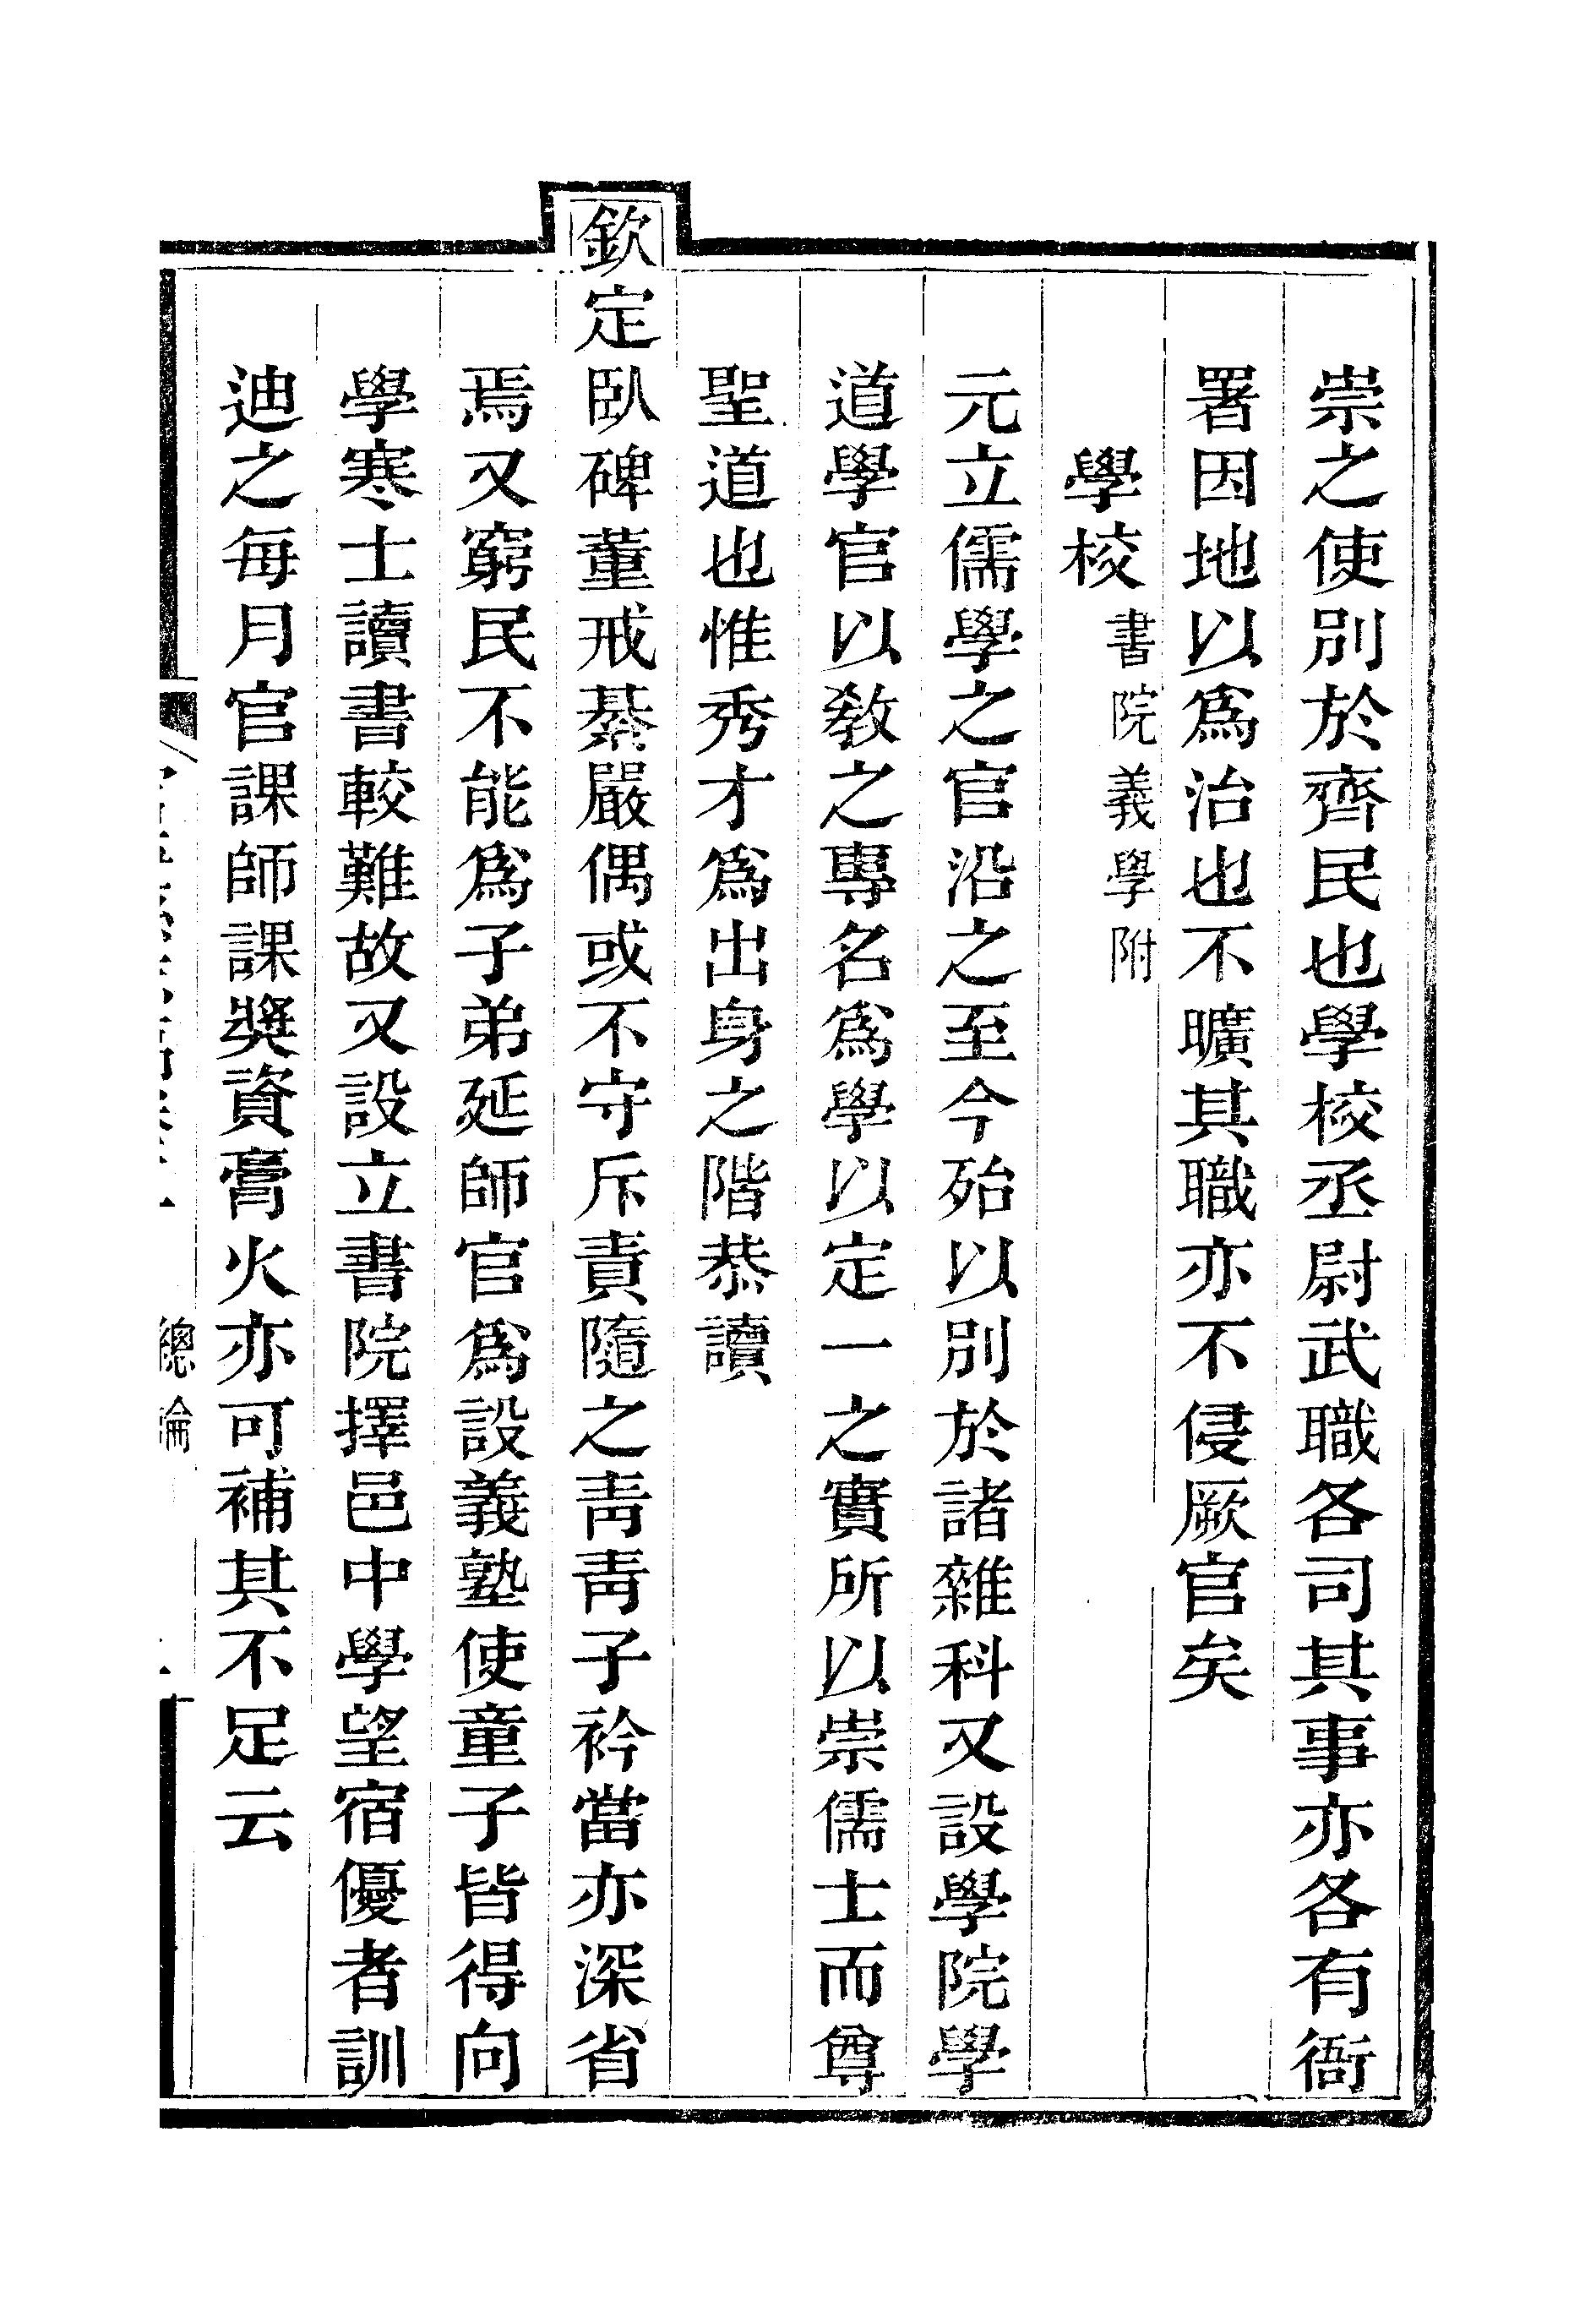 崇之使別於齊民也學校丞尉武職各司其事亦各有衙
署因地以爲治也不曠其職亦不侵厥官矣
學校書院義學附
元立儒學之官沿之至今殆以別於諸雜科又設學院學
道學官以敎之專名爲學以定一之實所以崇儒士而尊
聖道也惟秀才爲出身之階恭讀
欽定臥碑董戒綦嚴偶或不守斥責隨之靑靑子衿當亦深省
焉又窮民不能爲子弟延師官爲設義塾使童子皆得向
學寒士讀書較難故又設立書院擇邑中學望宿優者訓
迪之每月官課師課奬資膏火亦可補其不足云
總論